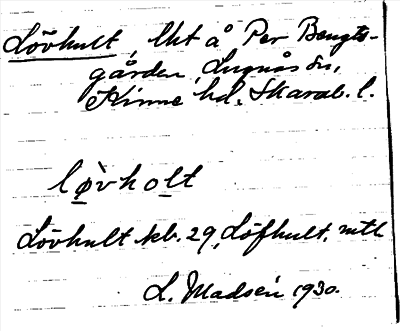 Lövhult, lht å Per Bengts-
gården, Lugnås sn,
Kinne hd, Skarab. l.
lø̀vholt
Lövhult kb. 29, Löfhult, mtl
L. Madsén 1930.